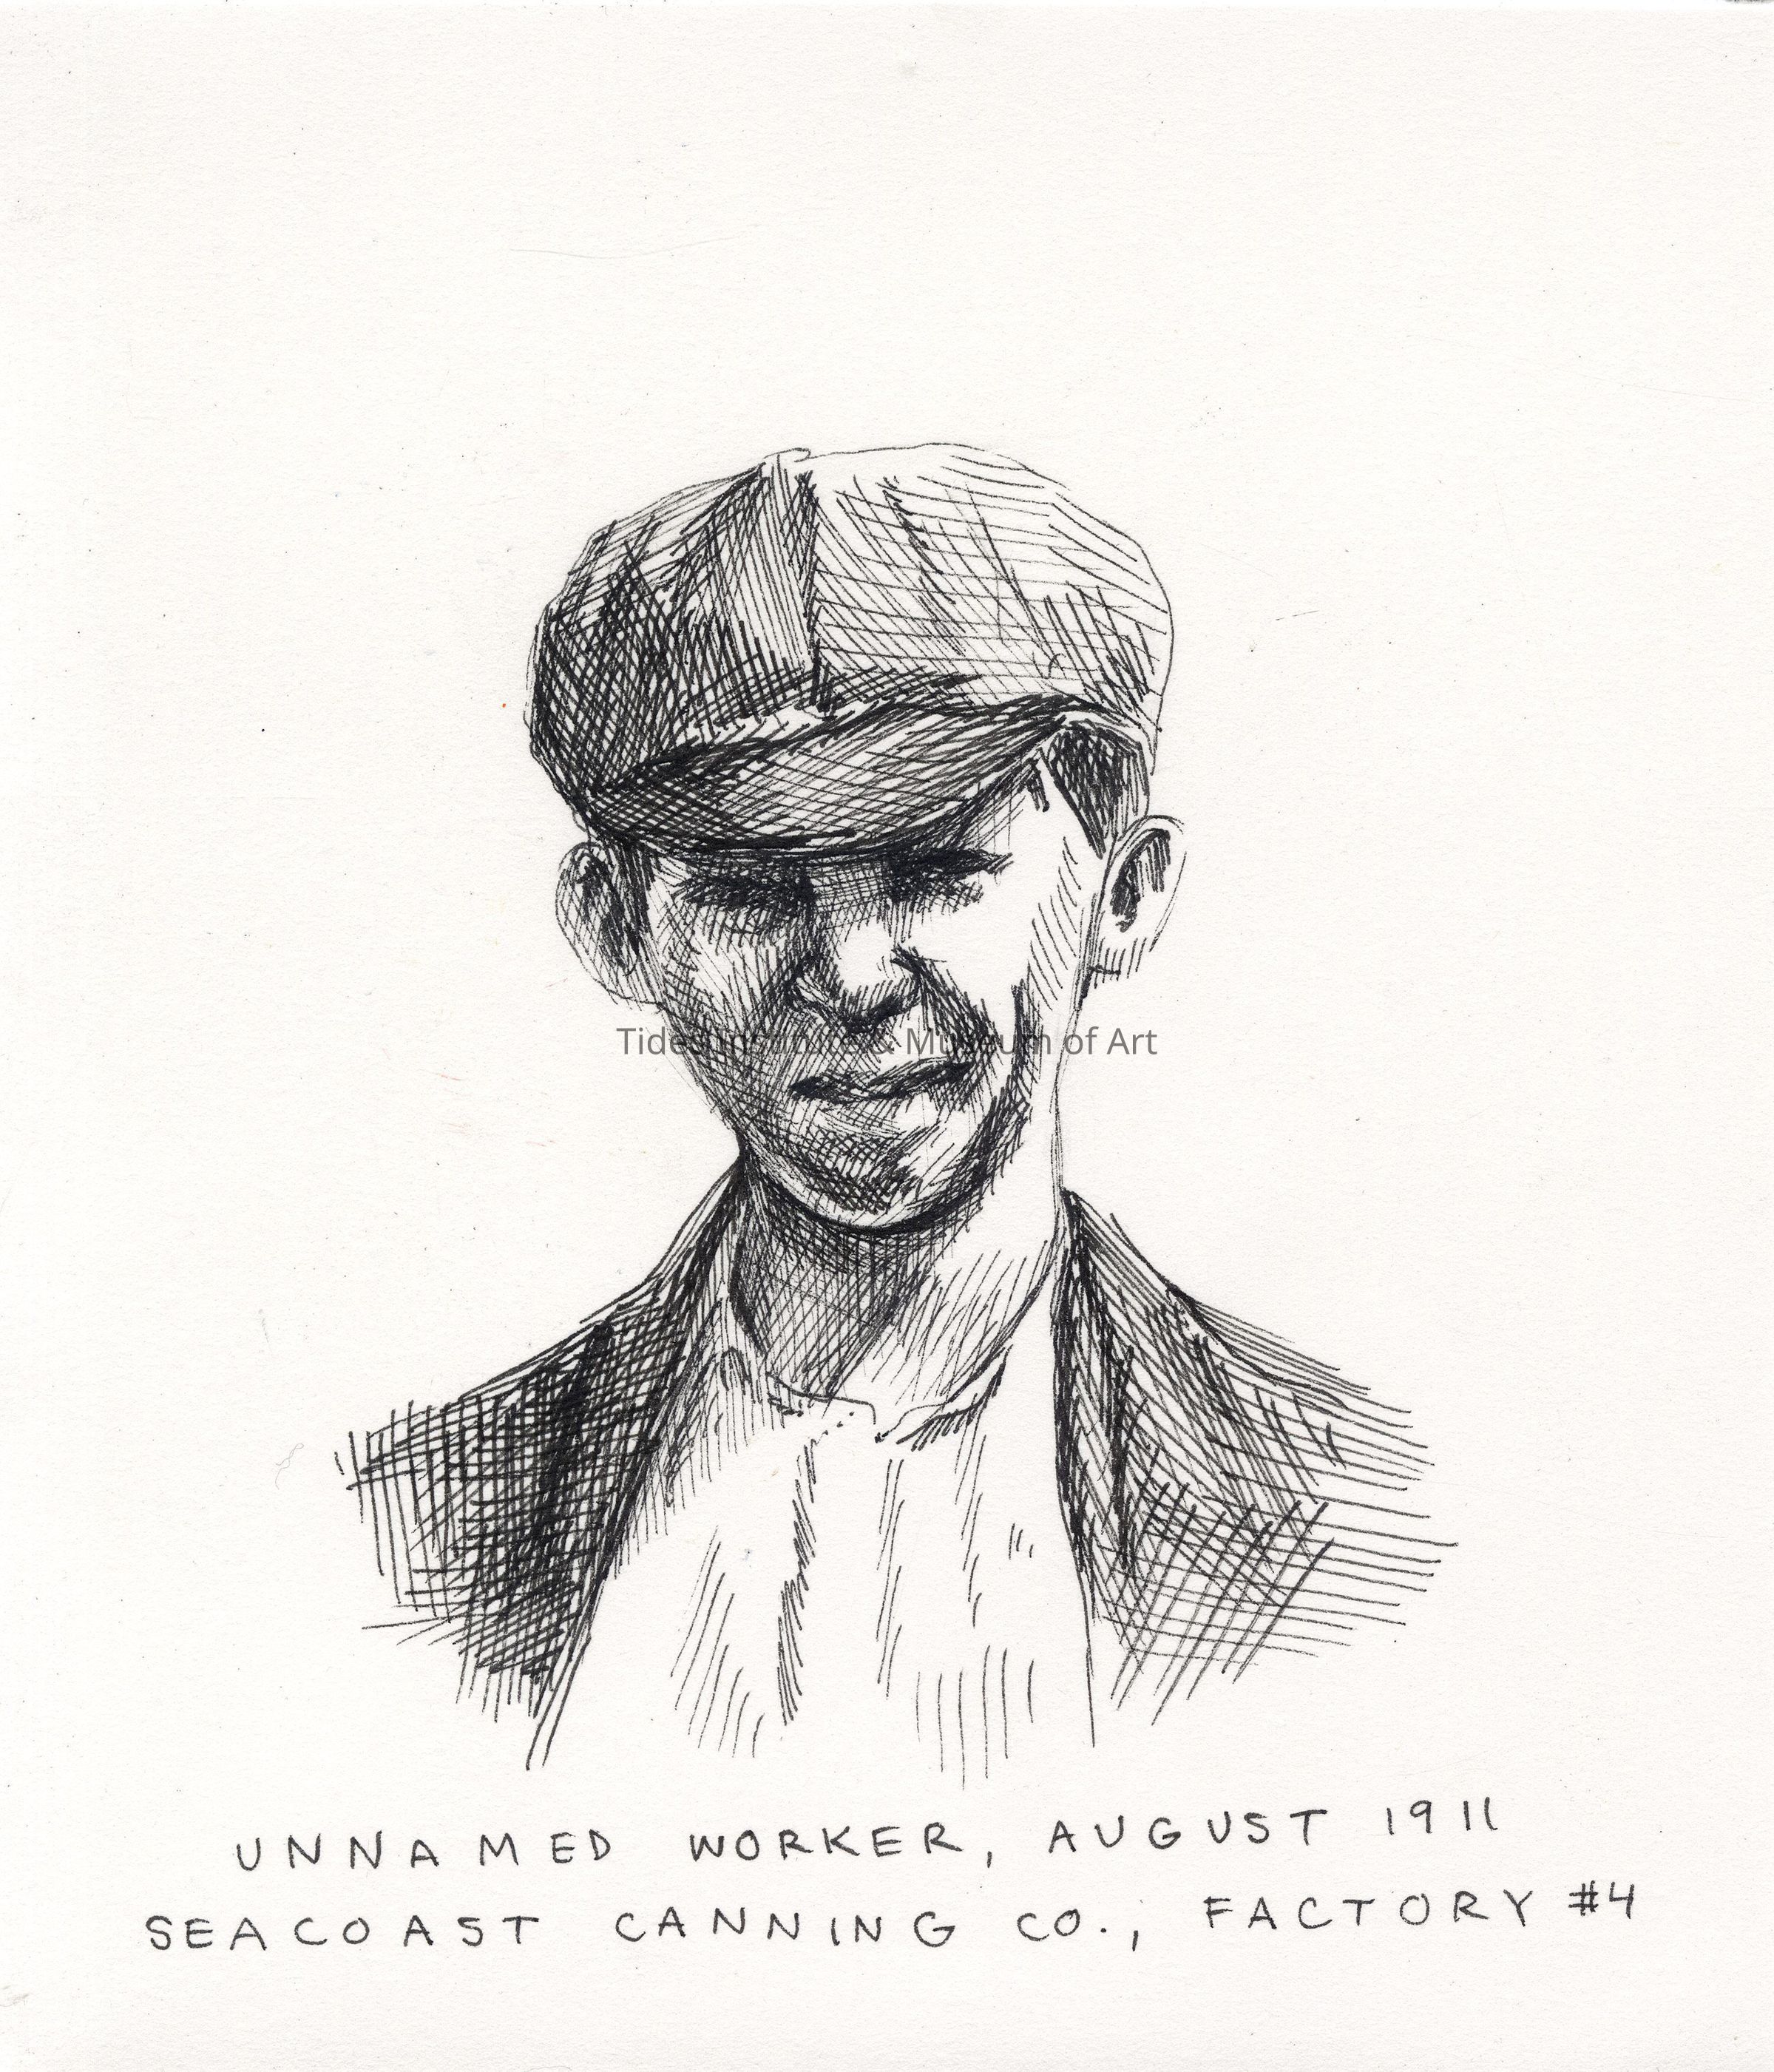 Tides Institute & Museum of Art
UNNAMED WORKER, AUGUST 1911
SEACOAST CANNING CO., FACTORY #4